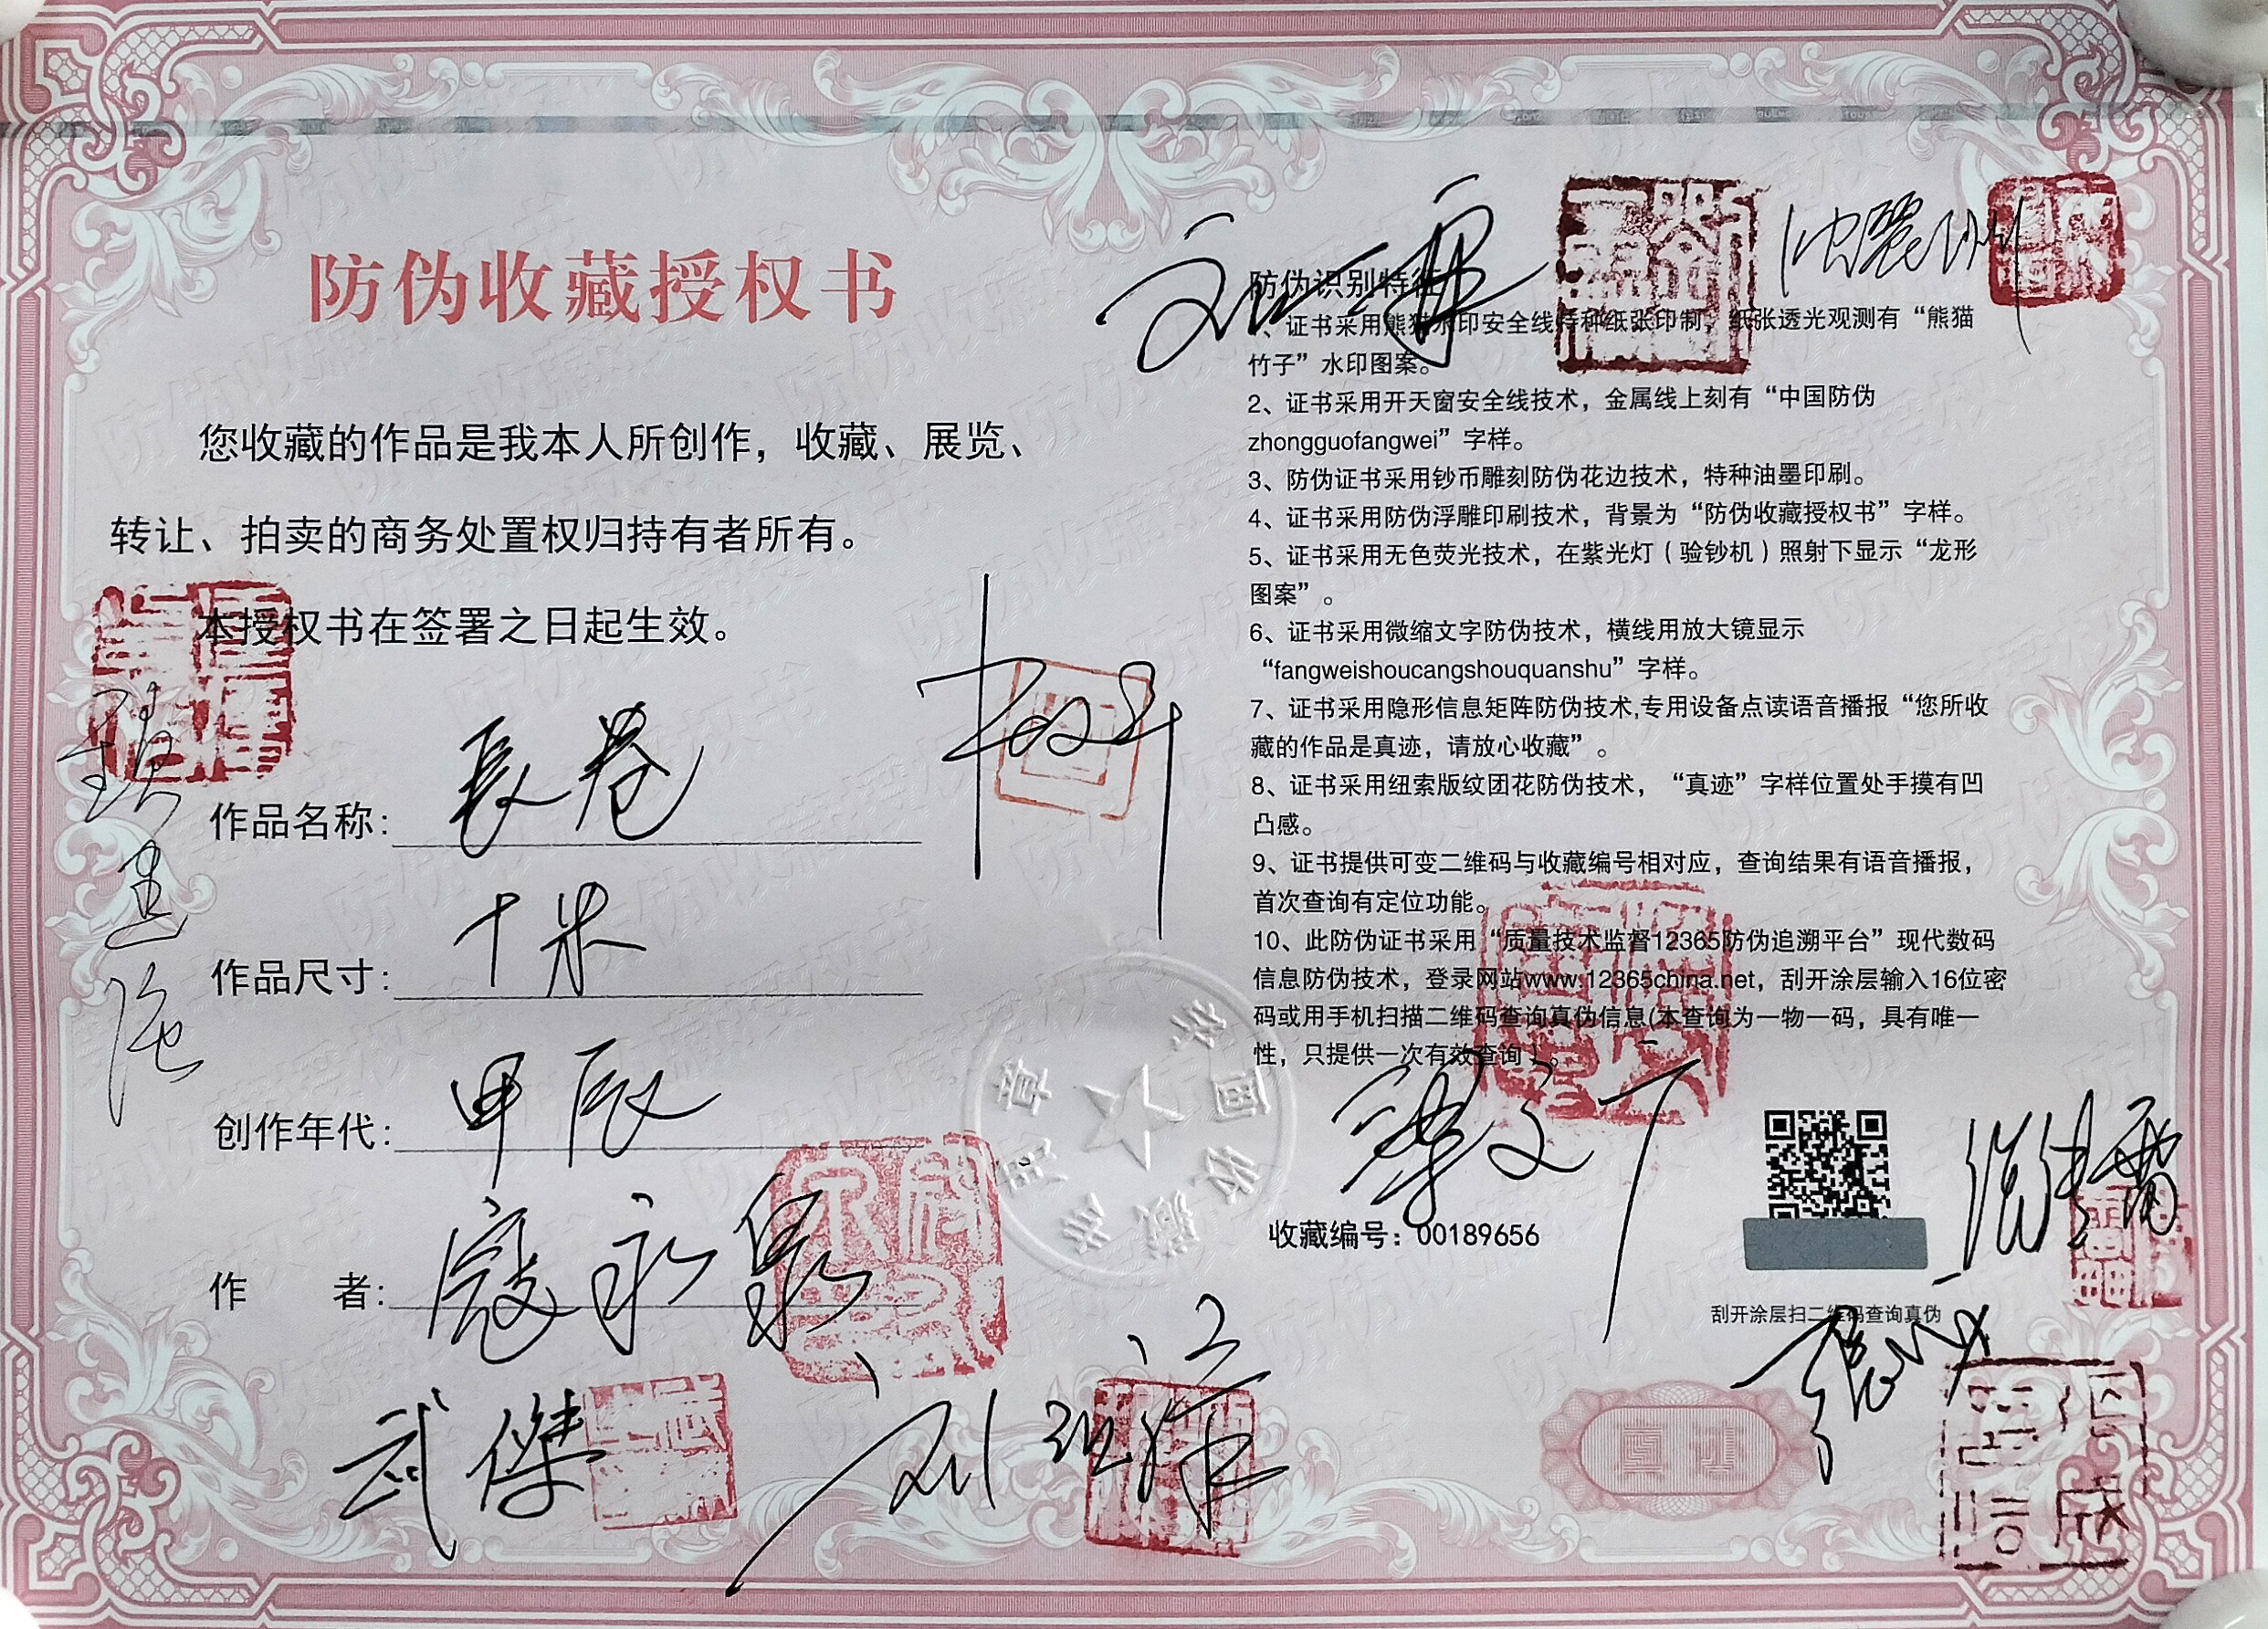 防伪收藏授权书
您收藏的作品是我本人所创作，收藏、展览、
转让、拍卖的商务处置权归持有者所有。
本授权书在签署之日起生效。
作品名称: 長卷
作品尺寸: 十米
创作年代: 甲辰
作 者: 寇永泉
武傑
2024
防伪识别特征
1、证书采用熊猫水印安全线特种纸张印制，纸张透光观测有“熊猫
竹子”水印图案。
2、证书采用开天窗安全线技术，金属线上刻有“中国防伪
zhongguofangwei”字样。
3、防伪证书采用钞币雕刻防伪花边技术，特种油墨印刷。
4、证书采用防伪浮雕印刷技术，背景为“防伪收藏授权书”字样。
5、证书采用无色荧光技术，在紫光灯（验钞机）照射下显示“龙形
图案”。
6、证书采用微缩文字防伪技术，横线用放大镜显示
“fangweishoucangshouquanshu”字样。
7、证书采用隐形信息矩阵防伪技术,专用设备点读语音播报“您所收
藏的作品是真迹，请放心收藏”。
8、证书采用纽索版纹团花防伪技术，“真迹”字样位置处手摸有凹
凸感。
9、证书提供可变二维码与收藏编号相对应，查询结果有语音播报，
首次查询有定位功能。
10、此防伪证书采用“质量技术监督12365防伪追溯平台”现代数码
信息防伪技术，登录网站www.12365china.net，刮开涂层输入16位密
码或用手机扫描二维码查询真伪信息(本查询为一物一码，具有唯一
性，只提供一次有效查询）。
收藏编号：00189656
刮开涂层扫二维码查询真伪
书画收藏专用章
真迹